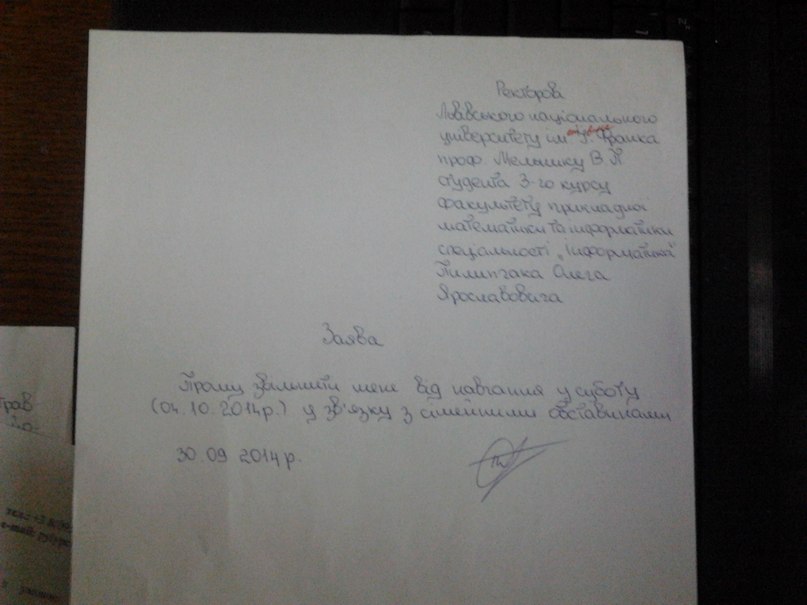 Ректорові
Львівського національного
університету ім. І. Франка
проф. Мельнику В.П
студента 3-го курсу
факультету прикладної
математики та інформатики
спеціальності „Інформатика"
Пилипчака Олега
Ярославовича
Заява
Прошу звільнити мене від навчання у суботу
(04.10.2014р.) у зв'язку з сімейними обставинами
30.09 2014 р.